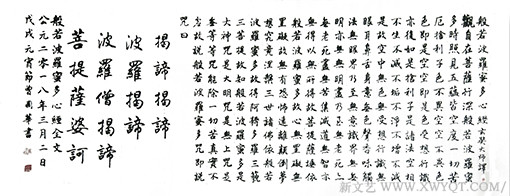 般若波羅蜜多心經 玄奘大師譯
觀自在菩薩行深般若波羅蜜
多時照見五蘊皆空度一切苦
厄舍利子色不異空空不異色
色即是空空即是色受想行識
亦復如是舍利子是諸法空相
不生不滅不垢不淨不增不減
是故空中無色無受想行識無
眼耳鼻舌身意無色聲香味觸
法無眼界乃至無意識界無無
明亦無無明盡乃至無老死亦
無老死盡無苦集滅道無智亦
無得以無所得故菩提薩埵依
般若波羅蜜多故心無罣礙無
罣礙故無有恐怖遠離顛倒夢
想究竟涅槃三世諸佛依般若
波羅蜜多故得阿耨多羅三藐
三菩提故知般若波羅蜜多是
大神咒是大明咒是無上咒是
無等等咒能除一切苦真實不
虛故說般若波羅蜜多咒即說
咒曰
揭諦揭諦
波羅揭諦
波羅僧揭諦
菩提薩婆訶
般若波羅蜜多心經全文
公元二零一八年三月二日
戊戌元宵節曾國華書
新文艺 WWW.XWYQT.COM